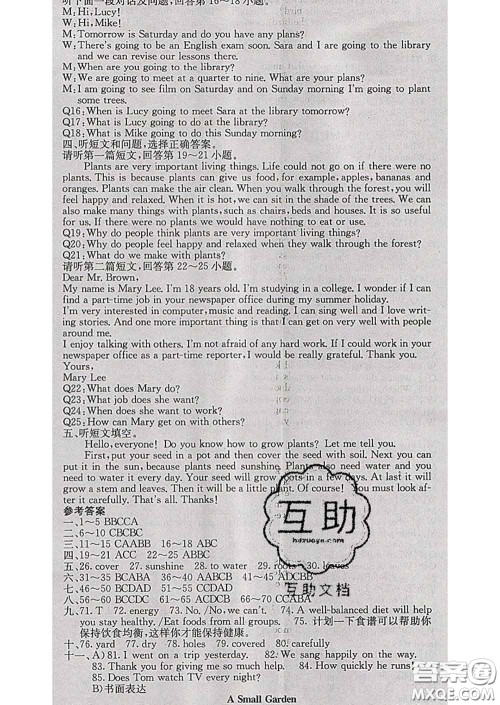 听下面一段对话及问题,回答第16~18小题。
M:Hi, Lucy!
W:Hi, Mike!
M:Tomorrow is Saturday and do you have any plans?
W:There's going to be an English exam soon. Sara and I are going to the library
and we can revise our lessons there.
M:When are you going to the library?
W:We are going to meet at a quarter to nine. What are your plans?
M:I am going to see film on Saturday and on Sunday morning I'm going to plant
some trees.
Q16:When is Lucy going to meet Sara at the library tomorrow?
Q17:What is Lucy going to do at the library?
Q18:What is Mike going to do this Sunday morning?
四、听短文和问题,选择正确答案。
请听第一篇短文,回答第19~21小题。
Plants are very important living things. Life could not go on if there were no
plants. This is because plants can give us food, for example, apples, bananas and
oranges. Plants can make the air clean. When you walk through the forest, you will
feel happy and relaxed. When it is hot, we can sit in the shade of the trees. We can
also make many things with plants, such as chairs, beds and houses. It is so useful
for us. If there were no plants we would have nothing to eat or use.
Q19:Why do people think plants are very important living things?
Q20:Why do people feel happy and relaxed when they walk through the forest?
Q21:What do we make with plants?
请听第二篇短文,回答第22~25小题。
Dear Mr. Brown,
My name is Mary Lee. I'm 18 years old. I'm studying in a college. I wonder if I can
find a part-time job in your newspaper office during my summer holiday.
I'm very interested in computer, music and reading. I can sing well and I love writ-
ing stories. And one more important thing is that I can get on very well with people
around me.
I enjoy talking with others. I'm not afraid of any hard work. If I could work in your
newspaper office as a part-time reporter, I would be really grateful. Thank you.
Yours,
Mary Lee
Q22:What does Mary do?
Q23:What job does she want?
Q24:When does she want to work?
Q25:How can Mary get on with others?
五、听短文填空。
Hello, everyone! Do you know how to grow plants? Let me tell you.
First, put your seed in a pot and then cover the seed with soil. Next you can
put it in the sun, because plants need sunshine. Plants also need water and you
need to water it every day. Your seed will grow roots in a few days. At last it will
grow a stem and leaves. Then it will be a little plant. Of course! You must look af-
ter it carefully. That's all. Thanks!
参考答案
一、1~5 BBCCA
二、6~10 CBCBC
三、11~15 CAABB 16~18 ABC
四、19~21 ACC 22~25 ABBC
五、26. cover 27. sunshine 28. to water 29. roots 30. leaves
六、31~35 BCABA 36~40 ABABA 41~45 ADCBB
七、46~50 BCDAD 51~55 CDDAD
八、56~60 BCCDC 61~65 ACDCB 66~70 CCABA
九、71. T 72. energy 73. No. /No, we can't. 74. A well-balanced diet will help
you stay healthy. /Eat foods from all groups. 75. 计划一下食谱可以帮助你
保持饮食均衡,这样你才能保持健康。
十、76. yard 77. dry 78. holes 79. covered 80. carefully
十一、A) 81. I went on a trip yesterday. 82. We sang happily on the way.
83. Thank you for giving me so much help. 84. How quickly he runs!
85. Does Tom watch TV every night?
B)书面表达
A Small Garden
互助
hdzuoye.com
互助文档
答案圈
MXQE.COM